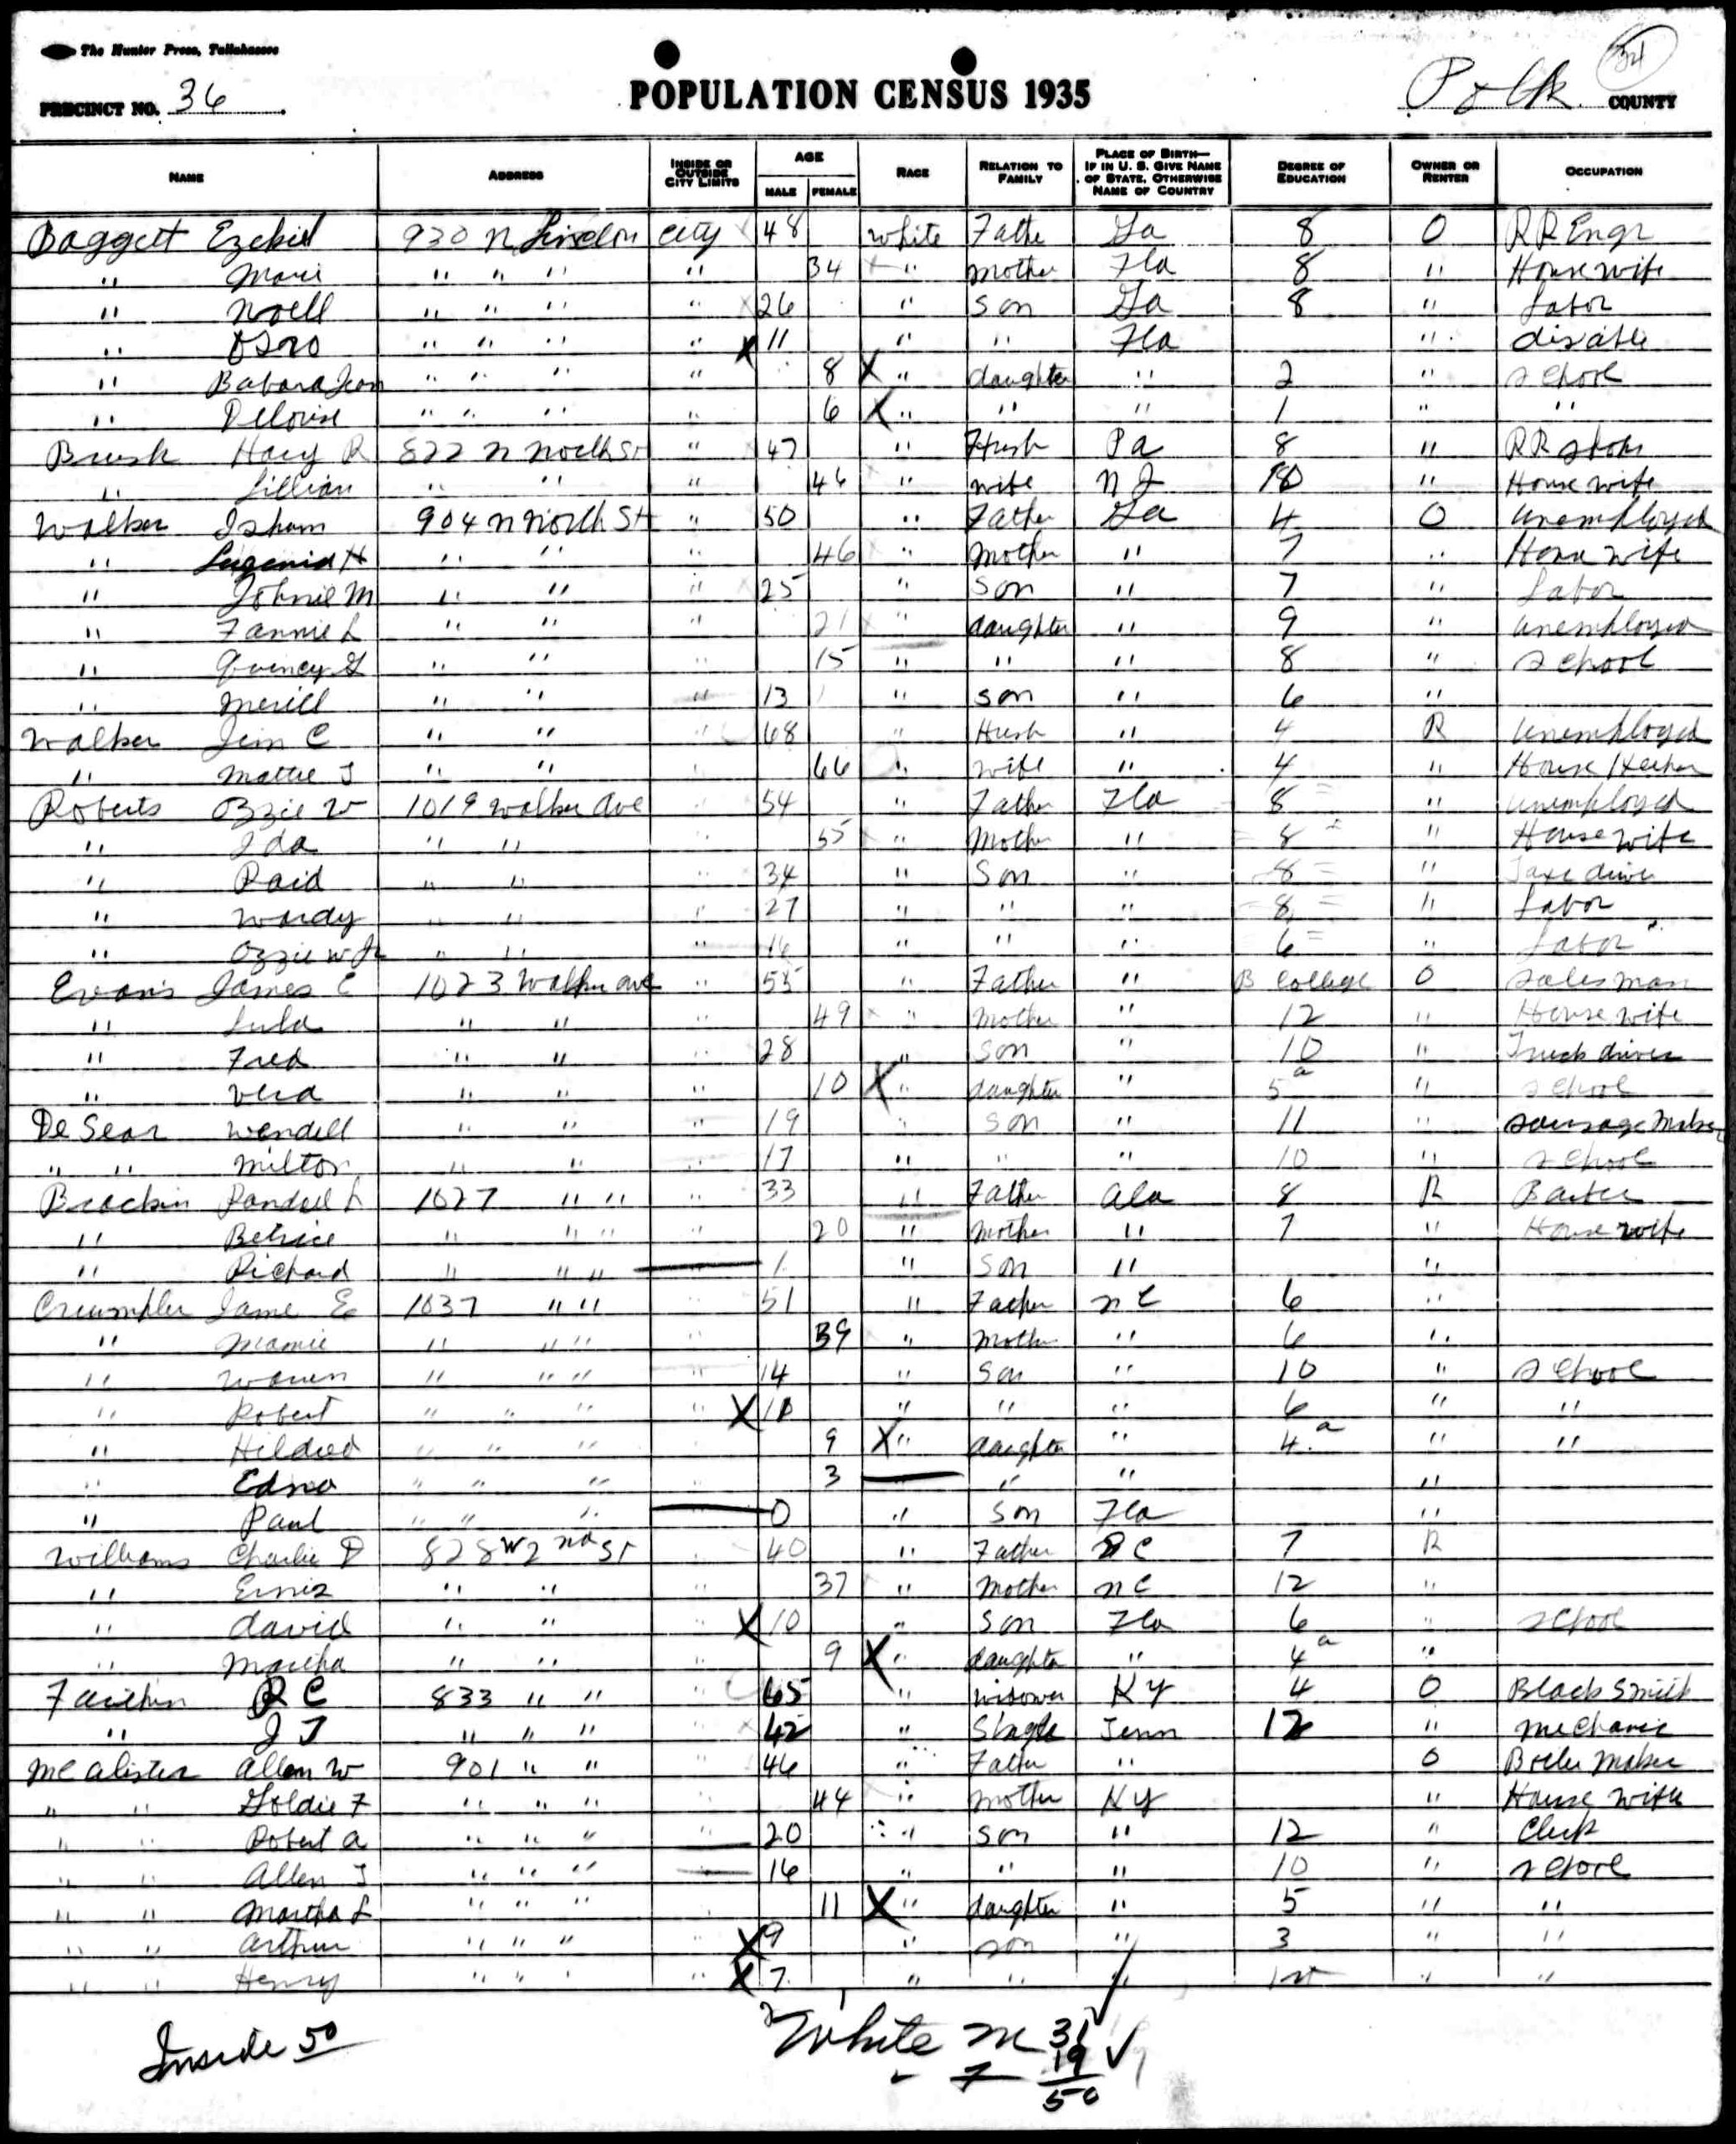 The Hunter Press, Tallahassee
34
PRECINCT NO. 36 POPULATION CENSUS 1935 Polk COUNTY
NAME ADDRESS INSIDE OR OUTSIDE CITY LIMITS AGE MALE FEMALE RACE RELATION TO FAMILY PLACE OF BIRTH— IF IN U. S. GIVE NAME OF STATE, OTHERWISE NAME OF COUNTRY DEGREE OF EDUCATION OWNER OR RENTER OCCUPATION
Baggett Ezekiel 930 N city 48 white Father Ga 8 O RR Engr
" Marie " " " " 34 " Mother Fla 8 " House wife
" Noell " " " " 26 " Son Ga 8 " Labor
" " " " " X 11 " " Fla " disable
" Babara Jean " " " " 8 X " daughter " 2 " school
" Delouise " " " " 6 X " " " 1 " "
Brush Hary R 822 N North St " 47 " Hush Pa 8 " RR
" Lillian " " " 46 " wife N J 10 " House wife
Walker Isham 904 N North St " 50 " Father Ga 4 O unemployed
" Eugenia H " " " 46 " Mother " 7 " House wife
" Johnie M " " " 25 " Son " 7 " Labor
" Fannie L " " " 21 " daughter " 9 " unemployed
" Quincy " " " 15 " " " 8 " school
" Merill " " " 13 " son " 6 "
Walker Jim C " " " 68 " Hush " 4 R unemployed
" Mattie J " " " 66 " wife " 4 " House Keeper
Roberts Ozzie W 1019 Walker Ave 54 " Father Fla 8 " unemployed
" Ida " " " 55 " Mother " 8 " House wife
" Raid " " " 34 " Son " 8 " Taxe driver
" Wordy " " " 27 " " " 8 " Labor
" Ozzie W Jr " " " 16 " " " 6 " Labor
Evans James E 1023 Walker Ave " 55 " Father " B College O sales man
" Lula " " " 49 " Mother " 12 " House wife
" Fred " " " 28 " Son " 10 " Truck driver
" Vera " " " 10 X " daughter " 5 a " school
De Sear Wendell " " " 19 " Son " 11 " sausage Maker
" " Milton " " " 17 " " " 10 " school
Brackin Randell L 1027 " " " 33 " Father Ala 8 R Barber
" Betrice " " " " 20 " Mother " 7 " House wife
" Richard " " " 1 " Son " "
Crumpler Jame E 1037 " " " 51 " Father N C 6 "
" Mamie " " " " 39 " Mother " 6 "
" Warren " " " " 14 " Son " 10 " school
" Robert " " " " X 11 " " " 6 " "
" Hildred " " " " 9 X " daughter " 4 a " "
" Edna " " " " 3 " " "
" Paul " " " 0 " Son Fla "
Williams Charlie P 828 W 2nd St " 40 " Father S C 7 R
" Ernie " " " 37 " Mother N C 12 "
" David " " " X 10 " Son Fla 6 " school
" Martha " " " 9 X " daughter " 4 a "
R C 833 " " " 65 " widower Ky 4 O Black Smith
" J T " " " " 42 " Single Tenn 12 " Mechanic
McAlister Allen W 901 " " " 46 " Father " O Boiler Maker
" " Goldie F " " " " 44 " Mother Ky " House Wife
" " Robert A " " " " 20 " Son " 12 " Clerk
" " Allen J " " " 16 " " " 10 " school
" " Martha L " " " 11 X " daughter " 5 " "
" " Arthur " " " " X 9 " son " 3 " "
" " Henry " " " " X 7 " " " 1st " "
Inside 50
White M 31
" F 19
50